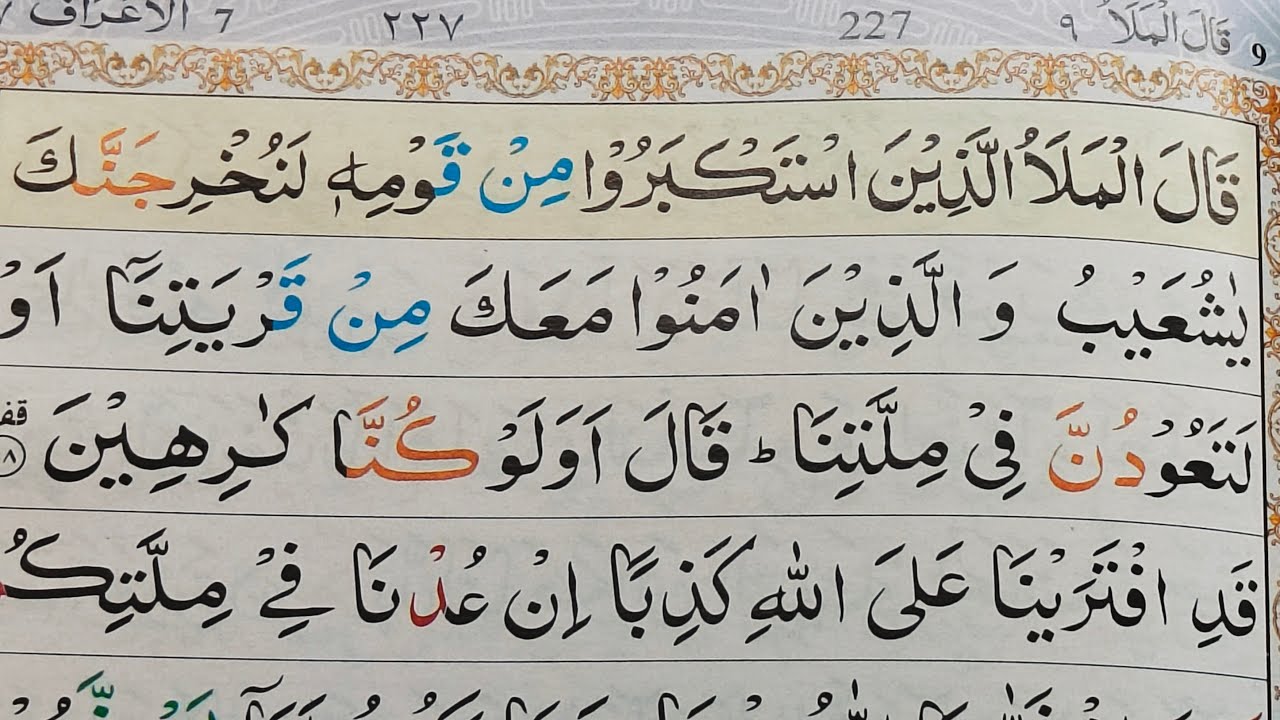 9 قَالَ الْمَلَاُ ٩ 227 ٢٢٧ 7 الْاَعْرَاف
قَالَ الْمَلَاُ الَّذِيْنَ اسْتَكْبَرُوْا مِنْ قَوْمِهٖ لَنُخْرِجَنَّكَ
يٰشُعَيْبُ وَ الَّذِيْنَ اٰمَنُوْا مَعَكَ مِنْ قَرْيَتِنَاۤ اَوْ
لَتَعُوْدُنَّ فِيْ مِلَّتِنَا ؕ قَالَ اَوَلَوْ كُنَّا كٰرِهِيْنَ
قَدِ افْتَرَيْنَا عَلَى اللّٰهِ كَذِبًا اِنْ عُدْنَا فِيْ